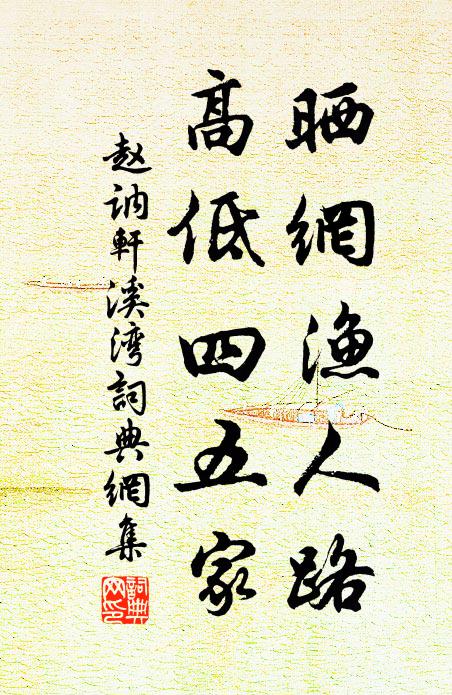 晒網漁人路
高低四五家
赵訥軒溪湾詞典網集
詞典網印